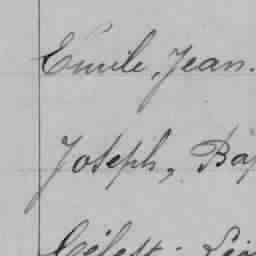 Emile, Jean.
Joseph, Bap
Célest